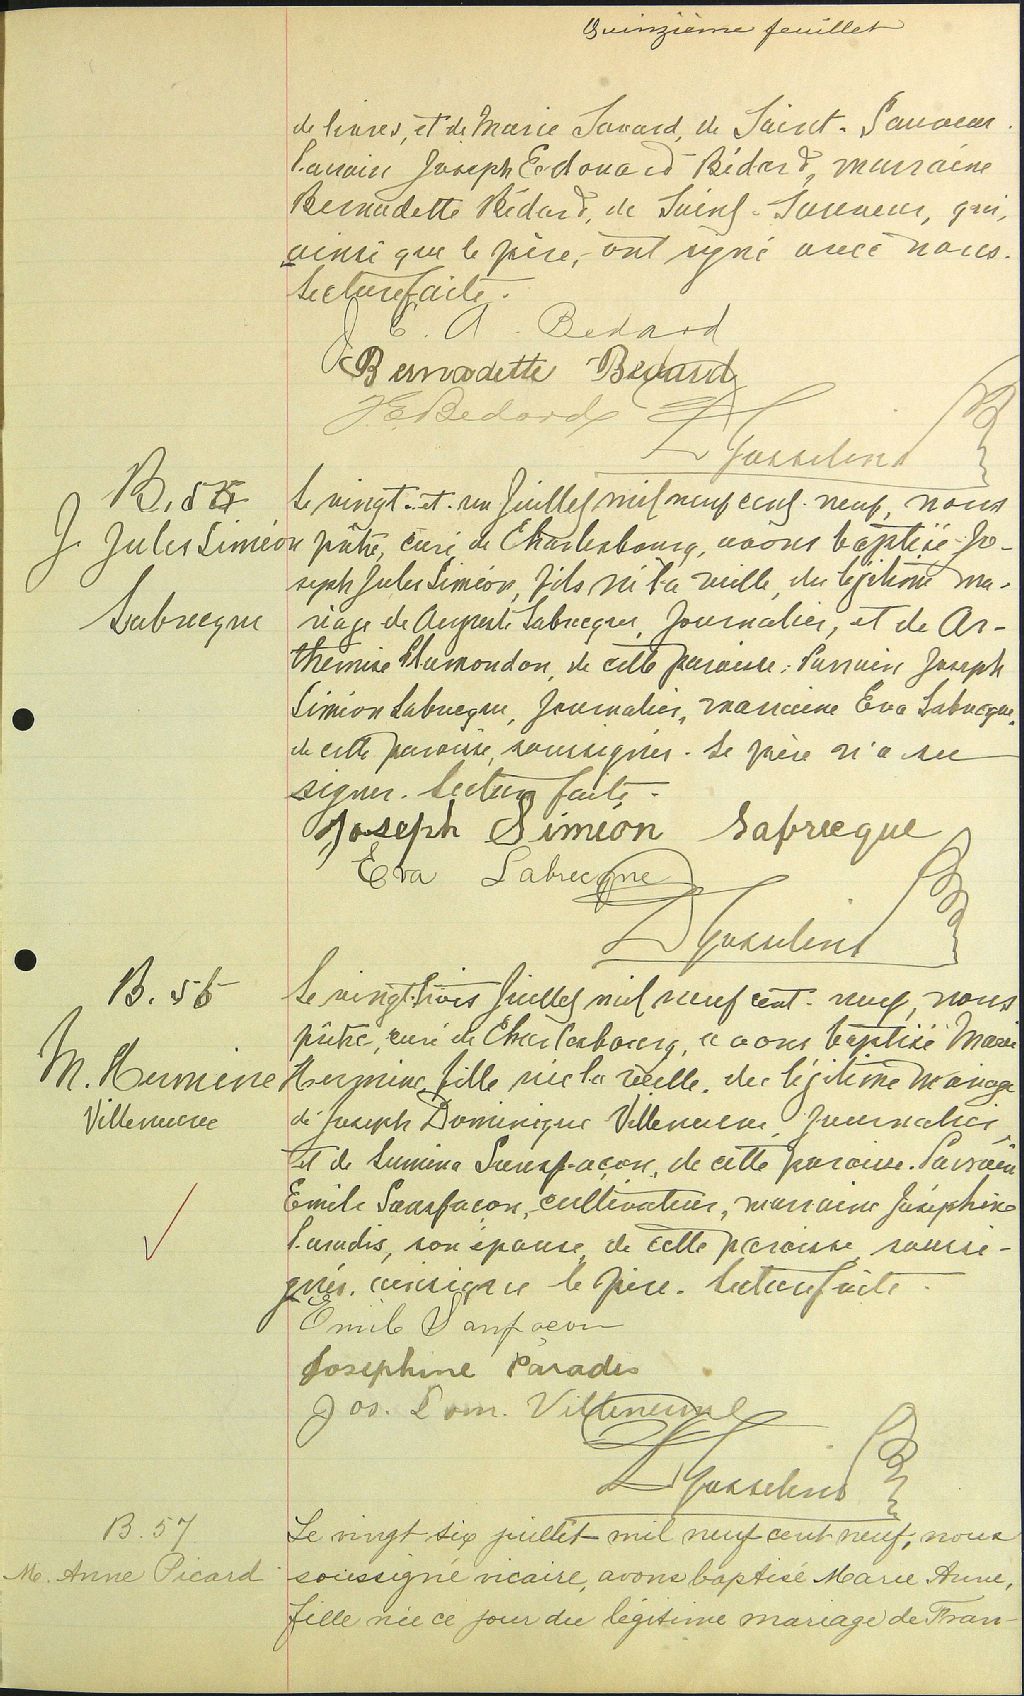 Quinzième feuillet
de livres, et de Marie Savard, de Saint-Sauveur.
Parrain Joseph Edouard Bédard, marraine
Bernadette Bédard, de Saint-Sauveur, qui,
ainsi que le père, ont signé avec nous.
Lecture faite.
J. E. A. Bedard
Bernadette Bedard
J. E. Bedard
D Gosselin
B. 55
J. Jules Siméon
Labrecque
Le vingt-et-un Juillet mil neuf cent-neuf, nous
prêtre, curé de Charlesbourg, avons baptisé Jo-
seph Jules Siméon, fils né la veille, du légitime ma-
riage de Auguste Labrecque, Journalier, et de Ar-
themise Plamondon, de cette paroisse. Parrain Joseph
Siméon Labrecque, Journalier, marraine Eva Labrecque,
de cette paroisse, soussignés. Le père n'a su
signer. Lecture faite.
Joseph Siméon Labrecque
Eva Labrecque
D Gosselin
B. 56
M. Hermine
Villeneuve
Le vingt-trois Juillet mil neuf cent-neuf, nous
prêtre, curé de Charlesbourg, avons baptisé Marie
Hermine, fille née la veille, du légitime mariage
de Joseph Dominique Villeneuve, Journalier,
et de Lumina Sansfaçon, de cette paroisse. Parrain
Emile Sansfaçon, cultivateur, marraine Joséphine
Paradis, son épouse, de cette paroisse, soussi-
gnés, ainsi que le père. Lecture faite.
Emile Sanfaçon
Josephine Paradis
Jos. Dom. Villeneuve
D Gosselin
B. 57
M. Anne Picard
Le vingt six juillet mil neuf cent neuf, nous
soussigné vicaire, avons baptisé Marie Anne,
fille née ce jour du légitime mariage de Fran-